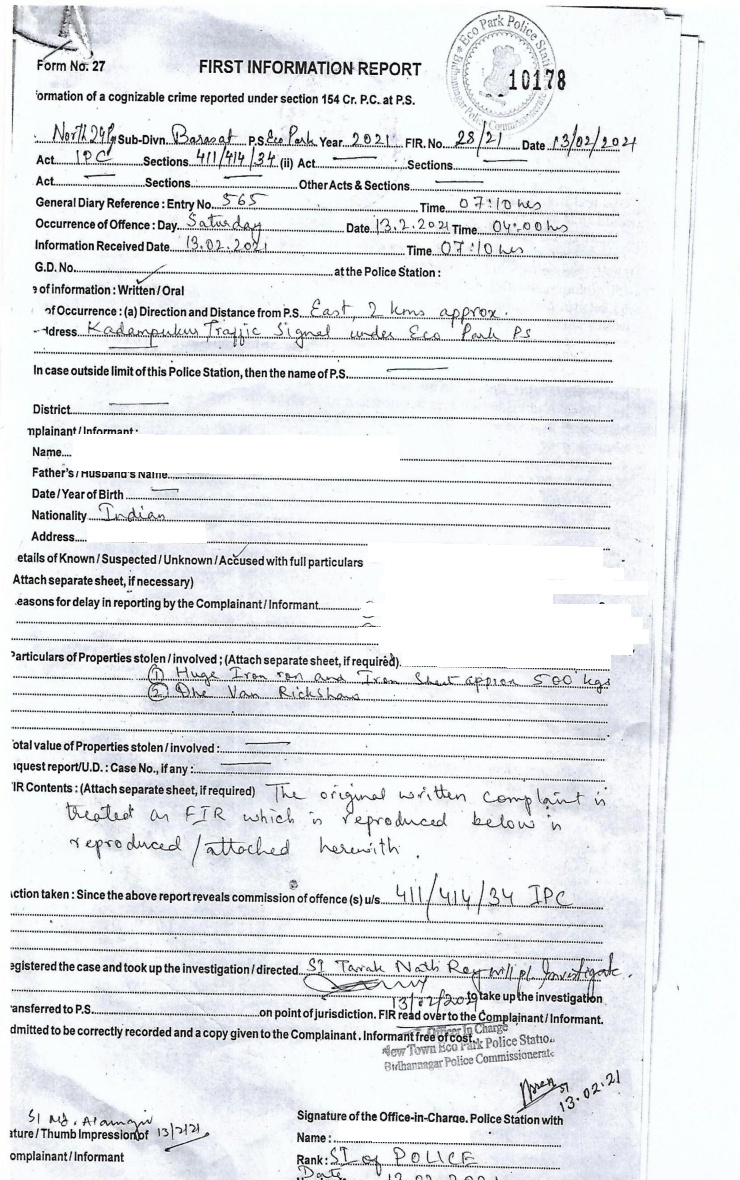 Eco Park Police Stati
Form No. 27
FIRST INFORMATION REPORT
10178
ormation of a cognizable crime reported under section 154 Cr. P.C. at P.S.
North 24 Pgs Sub-Divn. Barasat P.S. Eco Park Year 2021 FIR. No. 28/21 Date 13/02/2021
Act. IPC Sections 411/414/34 (ii) Act. — Sections —
Act. — Sections — Other Acts & Sections —
General Diary Reference : Entry No. 565 Time 07:10 hrs
Occurrence of Offence : Day. Saturday Date. 13.2.2021 Time 04:00 hrs
Information Received Date. 13.02.2021 Time. 07:10 hrs
G.D. No. at the Police Station :
e of information : Written / Oral
of Occurrence : (a) Direction and Distance from P.S. East, 2 kms approx.
ddress. Kadampukur Traffic Signal under Eco Park PS
In case outside limit of this Police Station, then the name of P.S. —
District —
mplainant / Informant :
Name
Father's / Husband's Name
Date / Year of Birth —
Nationality Indian
Address
etails of Known / Suspected / Unknown / Accused with full particulars
Attach separate sheet, if necessary)
easons for delay in reporting by the Complainant / Informant
Particulars of Properties stolen / involved ; (Attach separate sheet, if required).
① Huge Iron and Iron Sheet approx 500 kgs
② One Van Rickshaw
otal value of Properties stolen / involved : —
quest report/U.D. : Case No., if any : —
IR Contents : (Attach separate sheet, if required) The original written complaint is
treated as FIR which is reproduced below is
reproduced / attached herewith.
ction taken : Since the above report reveals commission of offence (s) u/s. 411/414/34 IPC
egistered the case and took up the investigation / directed. SI Tarak Nath Roy will pl. Investigate.
take up the investigation
ansferred to P.S. on point of jurisdiction. FIR read over to the Complainant / Informant.
dmitted to be correctly recorded and a copy given to the Complainant. Informant free of cost.
Officer In Charge
New Town Eco Park Police Station
Bidhannagar Police Commissionerate
SI
13.02.21
SI Md. Alamgir
13/2/21
Signature of the Office-in-Charge. Police Station with
ature / Thumb Impression of
Name :
omplainant / Informant
Rank : SI of POLICE
Date